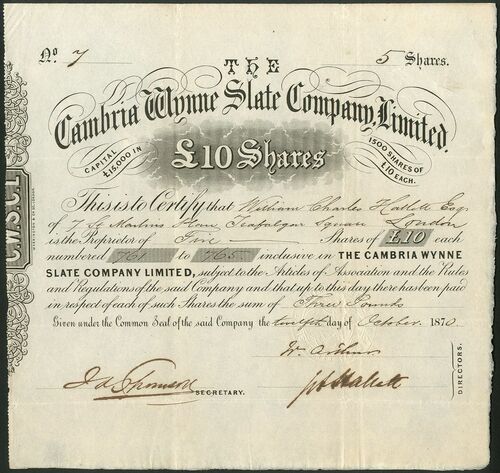 No. 7
5 Shares.
THE
Cambria Wynne Slate Company, Limited.
CAPITAL
£15,000 IN
£10 Shares
1500 SHARES OF
£10 EACH.
C.W.S.C.L.
This is to Certify that William Charles Hallett Esq.
of 7 St Martins Place Trafalgar Square London
is the Proprietor of Five Shares of £10 each
numbered 761 to 765 inclusive in THE CAMBRIA WYNNE
SLATE COMPANY LIMITED, subject to the Articles of Association and the Rules
and Regulations of the said Company and that up to this day there has been paid
in respect of each of such Shares the sum of Three Pounds
Given under the Common Seal of the said Company the twelfth day of October 1870.
Wm Arthur
SECRETARY.
DIRECTORS.